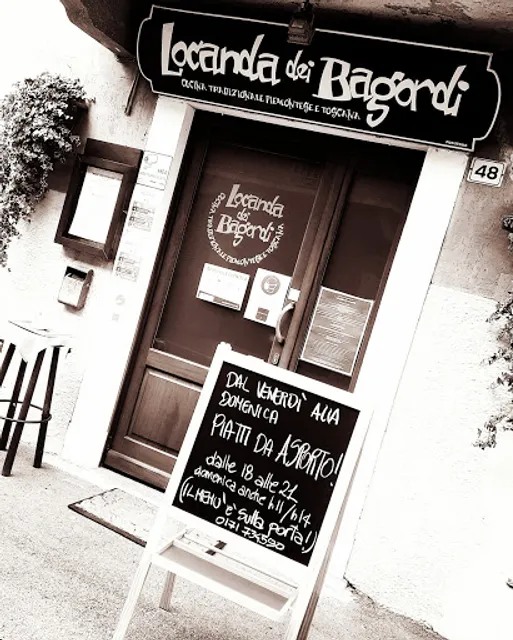 Locanda dei Bagordi
CUCINA TRADIZIONALE PIEMONTESE E TOSCANA
48
Locanda
dei
Bagordi
CUCINA TRADIZIONALE PIEMONTESE E TOSCANA
DAL VENERDÌ ALLA
DOMENICA
PIATTI DA ASPORTO!
dalle 18 alle 21
domenica anche h11/h14
(IL MENU' è sulla porta!)
0171 734590